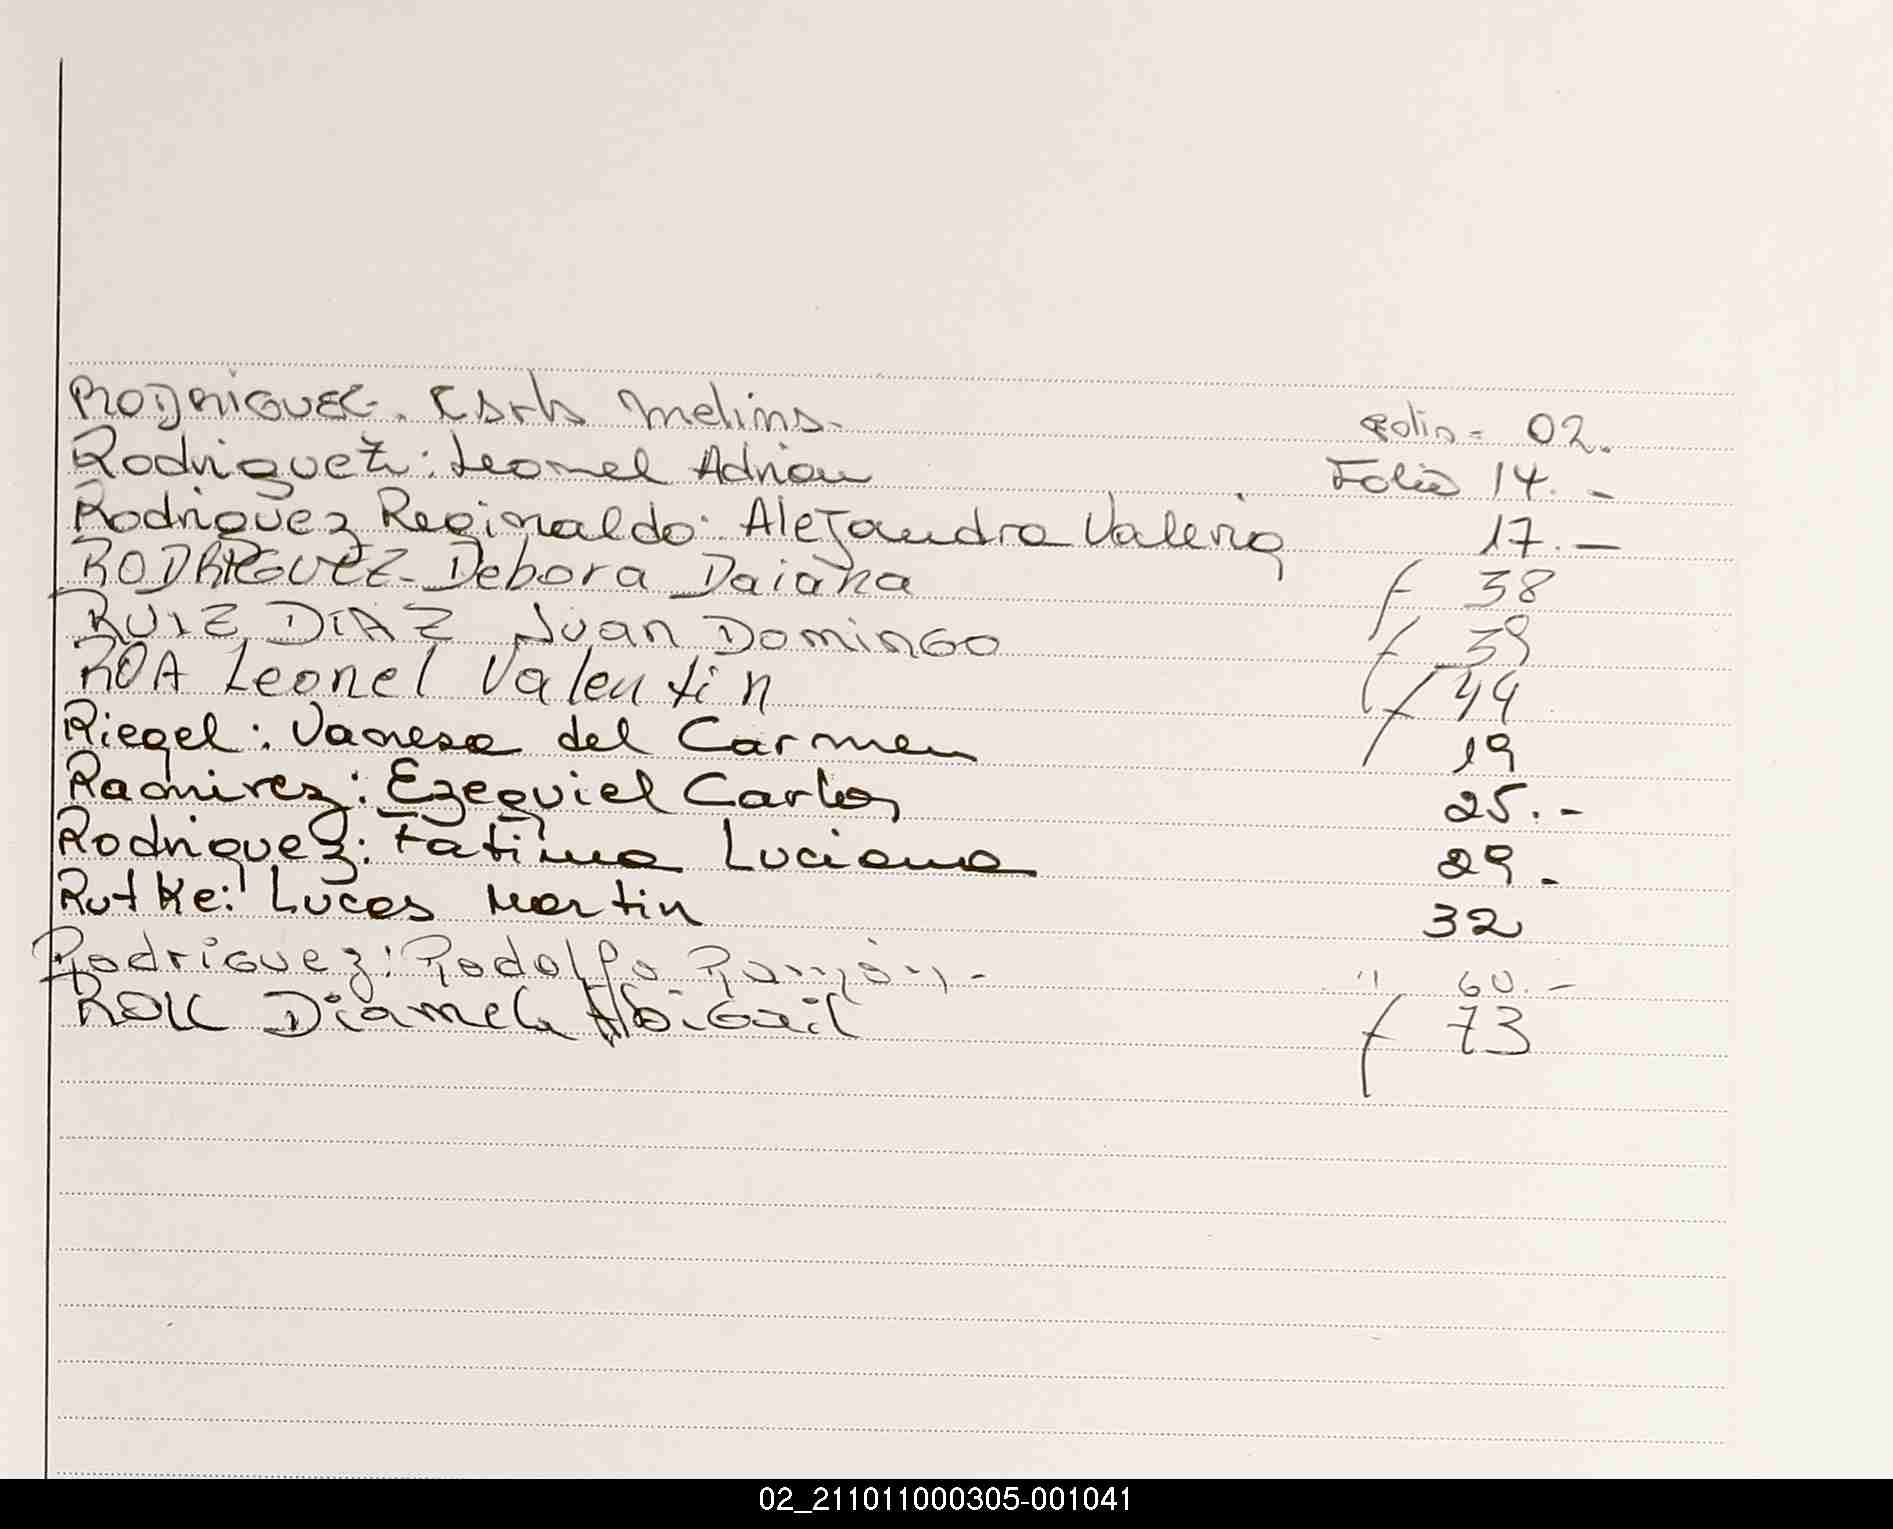 RODRIGUEZ. Karla Melina. Folio = 02.
Rodriguez: Leonel Adrian Folio 14. -
Rodriguez Reginaldo: Alejandra Valeria 17. -
RODRIGUEZ - Debora Daiana f 38
RUIZ DIAZ Juan Domingo f 39
ROA Leonel Valentin f 44
Riegel: Vanesa del Carmen 19
Ramirez: Ezequiel Carlos 25. -
Rodriguez: Fatima Luciana 29. -
Rutke: Lucas Martin 32
Rodriguez: Rodolfo Ramón. - " 60. -
Diamela Abigail f 73
02_211011000305-001041